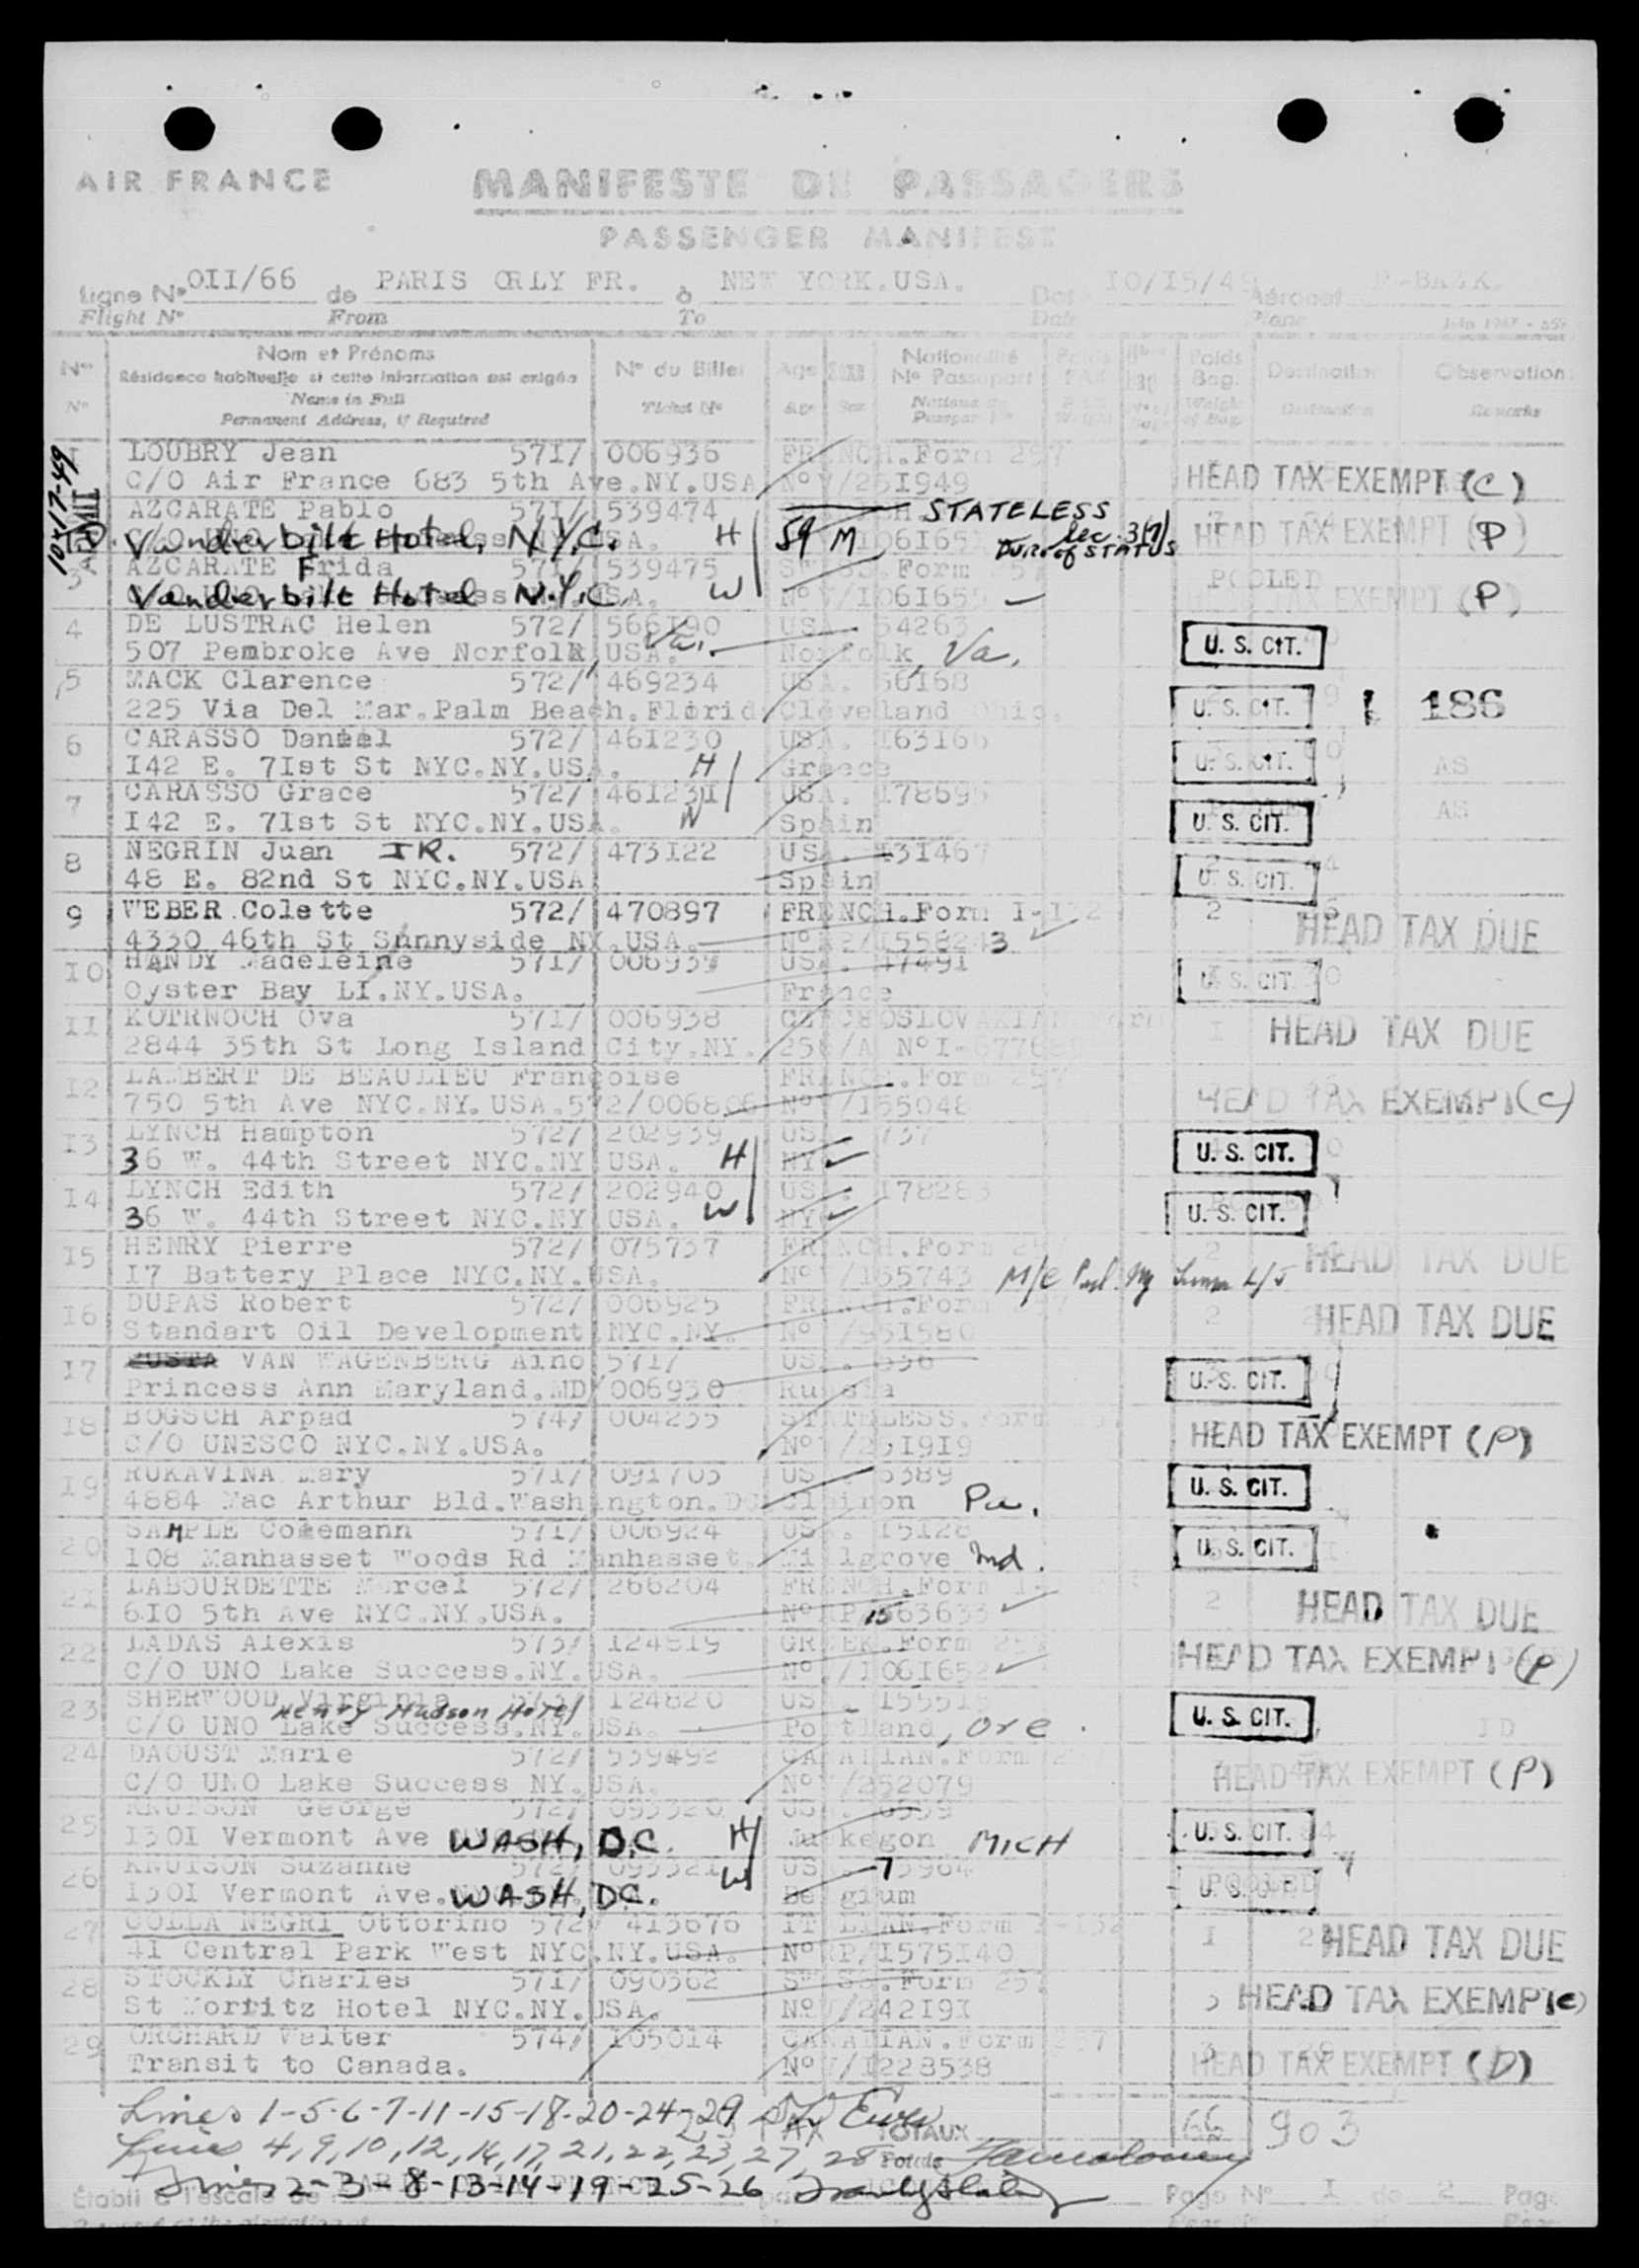 AIR FRANCE MANIFESTE DE PASSAGERS
PASSENGER MANIFEST
Ligne N° OII/66 de PARIS ORLY FR. à NEW YORK.USA. Date IO/I5/49 Aéronef
Flight N° From To Date Plane
N° Nom et Prénoms N° du Billet Age Sexe Nationalité Poids Poids Destination Observation
Résidence habituelle si cette information est exigée N° Passeport PAX Bag.
N° Name in Full Ticket N° Age Sex Destination Remarks
Permanent Address, if Required
10-17-49
LOUBRY Jean 57I/ 006936 FRENCH.Form 257
C/O Air France 683 5th Ave.NY.USA N° V/25I949 HEAD TAX EXEMPT (C)
AZCARATE Pablo 57I/ 539474 STATELESS
Vanderbilt Hotel, N.Y.C. H 59 M Sec. 3(7) Dur. of STATUS HEAD TAX EXEMPT (P)
3 AZCARATE Frida 57I/ 539475 SWISS.Form 257 POOLED
Vanderbilt Hotel N.Y.C. W N° V/I06I655 EXEMPT (P)
4 DE LUSTRAC Helen 572/ 566I90 USA. 54263
507 Pembroke Ave Norfolk, USA. Va. Norfolk, Va. U. S. CIT.
5 MACK Clarence 572/ 469234 USA. 56I68
225 Via Del Mar.Palm Beach.Florid Cleveland Ohio. U. S. CIT. 186
6 CARASSO Daniel 572/ 46I230 USA. I63I66
I42 E. 7Ist St NYC.NY.USA. H Greece U. S. CIT. AS
7 CARASSO Grace 572/ 46I23I USA. I78695 AS
I42 E. 7Ist St NYC.NY.USA. W Spain U. S. CIT.
8 NEGRIN Juan JR. 572/ 473I22 USA. I3I467
48 E. 82nd St NYC.NY.USA Spain U. S. CIT.
9 WEBER Colette 572/ 470897 FRENCH.Form I-I32 2
4330 46th St Sunnyside NY.USA. HEAD TAX DUE
I0 HANDY Madeleine 57I/ 006937 USA. 4749I
Oyster Bay LI.NY.USA. France U. S. CIT.
II KOTRNOCH Ova 57I/ 006938 CZECHOSLOVAKIAN Form
2844 35th St Long Island City.NY. 256/A N°I- I HEAD TAX DUE
I2 LAMBERT DE BEAULIEU Françoise FRENCH.Form 257
750 5th Ave NYC.NY.USA.572/006806 N° V/I55048 HEAD TAX EXEMPT (C)
I3 LYNCH Hampton 572/ 202939 USA. 737
36 W. 44th Street NYC.NY USA. H NYC U. S. CIT.
I4 LYNCH Edith 572/ 202940 USA. I78283
36 W. 44th Street NYC.NY USA. W NYC U. S. CIT.
I5 HENRY Pierre 572/ 075737 FRENCH.Form 2
I7 Battery Place NYC.NY.USA. N° V/I65743 HEAD TAX DUE
I6 DUPAS Robert 572/ 006925 FRENCH.Form 2
Standart Oil Development NYC.NY. N° V/95I580 HEAD TAX DUE
I7 VAN WAGENBERG Aino 57I/ USA. 536
Princess Ann Maryland.MD/006930 Russia U. S. CIT.
I8 BOGSCH Arpad 574/ 004235 STATELESS.Form
C/O UNESCO NYC.NY.USA. N° V/25I9I9 HEAD TAX EXEMPT (P)
I9 RUKAVINA Mary 57I/ 09I703 USA. 5389
4884 Mac Arthur Bld.Washington.DC Clairon Pa. U. S. CIT.
20 SAMPLE Colemann 57I/ 006924 USA. I5I28
I08 Manhasset Woods Rd Manhasset. Millgrove Ind. U. S. CIT.
2I LABOURDETTE Marcel 572/ 266204 FRENCH.Form I- 2
6I0 5th Ave NYC.NY.USA. N° RP 1563633 HEAD TAX DUE
22 LADAS Alexis 573/ I248I9 GREEK.Form 257
C/O UNO Lake Success.NY.USA. N° V/I06I652 HEAD TAX EXEMPT (P)
23 SHERWOOD Virginia 573/ I24820 USA. I555I
Henry Hudson Hotel
C/O UNO Lake Success.NY.USA. Portland, Ore. U. S. CIT. ID
24 DAOUST Marie 572/ 539492 CANADIAN.Form 257
C/O UNO Lake Success NY.USA. N° V/252079 HEAD TAX EXEMPT (P)
25 KNUTSON George 572/ 095320 USA. 6559
I30I Vermont Ave WASH, D.C. H Muskegon MICH U. S. CIT.
26 KNUTSON Suzanne 572/ 09532I USA. 75964
I30I Vermont Ave. WASH, D.C. W Belgium POOLED U. S. CIT.
27 COLLA NEGRI Ottorino 572/ 4I5676 ITALIAN.Form I-I32
4I Central Park West NYC.NY.USA. N° RP/I575I40 I 2 HEAD TAX DUE
28 STOCKLY Charles 57I/ 090362 SWISS.Form 257
St Morritz Hotel NYC.NY.USA. N° V/242I9I HEAD TAX EXEMPT (C)
29 ORCHARD Walter 574/ I05014 CANADIAN.Form 257
Transit to Canada. N° V/I228538 HEAD TAX EXEMPT (D)
Lines 1-5-6-7-11-15-18-20-24-29 PAX TOTAUX 66 903
Lines 4,9,10,12,16,17,21,22,23,27,28 Totals
Lines 2-3-8-13-14-19-25-26
Établi à l'escale de Page N° I de 2 Page